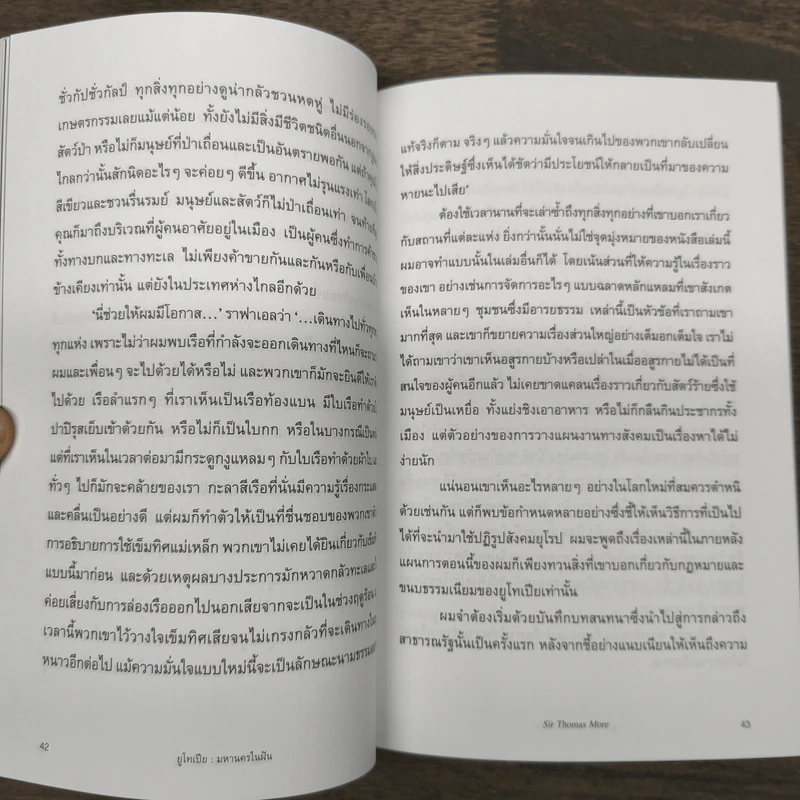 ชั่วกัปชั่วกัลป์ ทุกสิ่งทุกอย่างดูน่ากลัวชวนหดหู่ ไม่มีร่องรอย
เกษตรกรรมเลยแม้แต่น้อย ทั้งยังไม่มีสิ่งมีชีวิตชนิดอื่นนอกจาก
สัตว์ป่า หรือไม่ก็มนุษย์ที่ป่าเถื่อนและเป็นอันตรายพอกัน แต่
ไกลกว่านั้นสักนิดอะไรๆ จะค่อยๆ ดีขึ้น อากาศไม่รุนแรงเท่า
สีเขียวและชวนรื่นรมย์ มนุษย์และสัตว์ก็ไม่ป่าเถื่อนเท่า
คุณก็มาถึงบริเวณที่ผู้คนอาศัยอยู่ในเมือง เป็นผู้คนซึ่งทำการค้า
ทั้งทางบกและทางทะเล ไม่เพียงค้าขายกันและกันหรือกับเพื่อน
ข้างเคียงเท่านั้น แต่ยังในประเทศห่างไกลอีกด้วย
‘นี่ช่วยให้ผมมีโอกาส...’ ราฟาเอลว่า ‘...เดินทางไปทั่ว
ทุกแห่ง เพราะไม่ว่าผมพบเรือที่กำลังจะออกเดินทางที่ไหนก็จะ
ผมและเพื่อนๆ จะไปด้วยได้หรือไม่ และพวกเขาก็มักจะยินดีให้เรา
ไปด้วย เรือลำแรกๆ ที่เราเห็นเป็นเรือท้องแบน มีใบเรือทำด้วย
ปาปิรุสเย็บเข้าด้วยกัน หรือไม่ก็เป็นใบกก หรือในบางกรณีเป็น
แต่ที่เราเห็นในเวลาต่อมามีกระดูกงูแหลมๆ กับใบเรือทำด้วยผ้าใบ
ทั่วๆ ไปก็มักจะคล้ายของเรา กะลาสีเรือที่นั่นมีความรู้เรื่องกระแส
และคลื่นเป็นอย่างดี แต่ผมก็ทำตัวให้เป็นที่ชื่นชอบของพวกเขา
การอธิบายการใช้เข็มทิศแม่เหล็ก พวกเขาไม่เคยได้ยินเกี่ยวกับ
แบบนี้มาก่อน และด้วยเหตุผลบางประการมักหวาดกลัวทะเล
ค่อยเสี่ยงกับการล่องเรือออกไปนอกเสียจากจะเป็นในช่วงฤดูร้อน
เวลานี้พวกเขาไว้วางใจเข็มทิศเสียจนไม่เกรงกลัวที่จะเดินทางใน
หนาวอีกต่อไป แม้ความมั่นใจแบบใหม่นี้จะเป็นลักษณะนามธรรม
42
ยูโทเปีย : มหานครในฝัน
แท้จริงก็ตาม จริงๆ แล้วความมั่นใจจนเกินไปของพวกเขากลับเปลี่ยน
ให้สิ่งประดิษฐ์ซึ่งเห็นได้ชัดว่ามีประโยชน์ให้กลายเป็นที่มาของความ
หายนะไปเสีย’
ต้องใช้เวลานานที่จะเล่าซ้ำถึงทุกสิ่งทุกอย่างที่เขาบอกเราเกี่ยว
กับสถานที่แต่ละแห่ง ยิ่งกว่านั้นนั่นไม่ใช่จุดมุ่งหมายของหนังสือเล่มนี้
ผมอาจทำแบบนั้นในเล่มอื่นก็ได้ โดยเน้นส่วนที่ให้ความรู้ในเรื่องราว
ของเขา อย่างเช่นการจัดการอะไรๆ แบบฉลาดหลักแหลมที่เขาสังเกต
เห็นในหลายๆ ชุมชนซึ่งมีอารยธรรม เหล่านี้เป็นหัวข้อที่เราถามเขา
มากที่สุด และเขาก็ขยายความเรื่องส่วนใหญ่อย่างเต็มอกเต็มใจ เราไม่
ได้ถามเขาว่าเขาเห็นอสูรกายบ้างหรือเปล่าในเมื่ออสูรกายไม่ได้เป็นที่
สนใจของผู้คนอีกแล้ว ไม่เคยขาดแคลนเรื่องราวเกี่ยวกับสัตว์ร้ายซึ่งใช้
มนุษย์เป็นเหยื่อ ทั้งแย่งชิงเอาอาหาร หรือไม่ก็กลืนกินประชากรทั้ง
เมือง แต่ตัวอย่างของการวางแผนงานทางสังคมเป็นเรื่องหาได้ไม่
ง่ายนัก
แน่นอนเขาเห็นอะไรหลายๆ อย่างในโลกใหม่ที่สมควรตำหนิ
ด้วยเช่นกัน แต่ก็พบข้อกำหนดหลายอย่างซึ่งชี้ให้เห็นวิธีการที่เป็นไป
ได้ที่จะนำมาใช้ปฏิรูปสังคมยุโรป ผมจะพูดถึงเรื่องเหล่านี้ในภายหลัง
แผนการตอนนี้ของผมก็เพียงทวนสิ่งที่เขาบอกเกี่ยวกับกฎหมายและ
ขนบธรรมเนียมของยูโทเปียเท่านั้น
ผมจำต้องเริ่มด้วยบันทึกบทสนทนาซึ่งนำไปสู่การกล่าวถึง
สาธารณรัฐนั้นเป็นครั้งแรก หลังจากชี้อย่างแนบเนียนให้เห็นถึงความ
Sir Thomas More
43